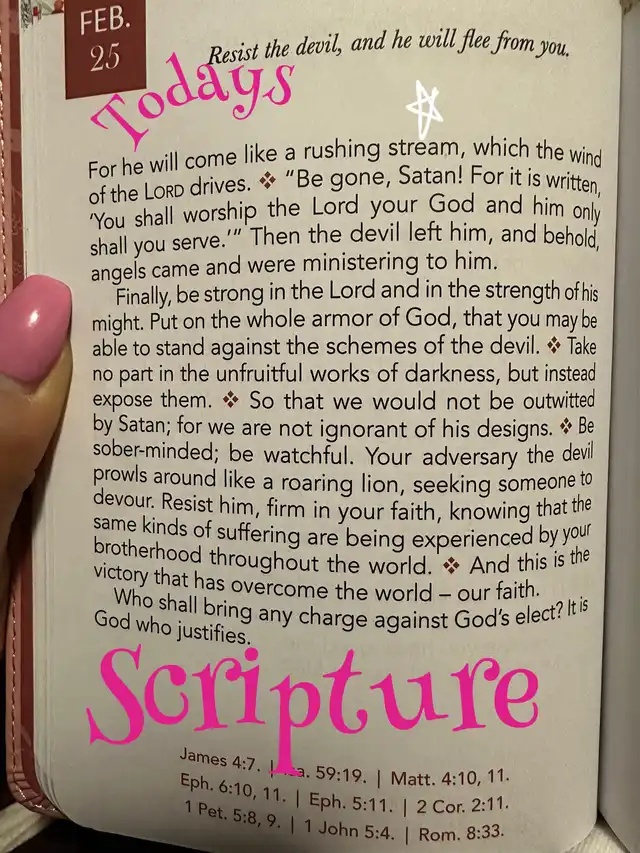 FEB.
25
Resist the devil, and he will flee from you.
Todays
For he will come like a rushing stream, which the wind
of the LORD drives. ❖ “Be gone, Satan! For it is written,
‘You shall worship the Lord your God and him only
shall you serve.’” Then the devil left him, and behold,
angels came and were ministering to him.
Finally, be strong in the Lord and in the strength of his
might. Put on the whole armor of God, that you may be
able to stand against the schemes of the devil. ❖ Take
no part in the unfruitful works of darkness, but instead
expose them. ❖ So that we would not be outwitted
by Satan; for we are not ignorant of his designs. ❖ Be
sober-minded; be watchful. Your adversary the devil
prowls around like a roaring lion, seeking someone to
devour. Resist him, firm in your faith, knowing that the
same kinds of suffering are being experienced by your
brotherhood throughout the world. ❖ And this is the
victory that has overcome the world – our faith.
Who shall bring any charge against God’s elect? It is
God who justifies.
Scripture
James 4:7. | 59:19. | Matt. 4:10, 11.
Eph. 6:10, 11. | Eph. 5:11. | 2 Cor. 2:11.
1 Pet. 5:8, 9. | 1 John 5:4. | Rom. 8:33.